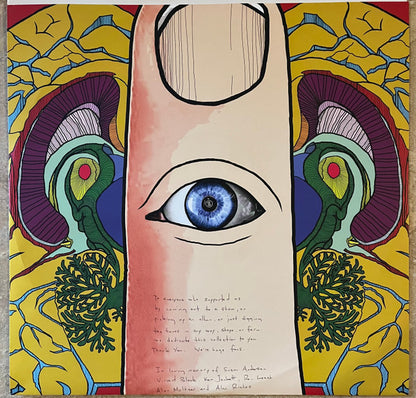 To everyone who supported us
by coming out to a show, or
picking up an album or just digging
the tunes in any way, shape or form
we dedicate this collection to you
Thank You. We're huge fans.
In loving memory of Susan Anderson
Alan Meltzer and Alan